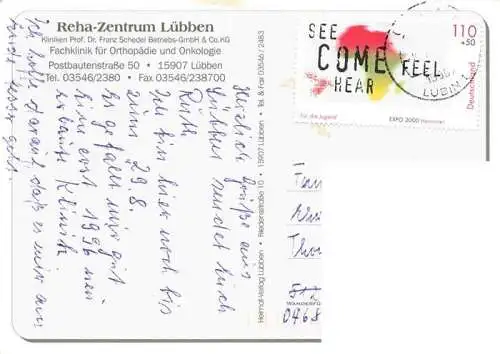 Reha-Zentrum Lübben
Kliniken Prof. Dr. Franz Schedel Betriebs-GmbH & Co.KG
Fachklinik für Orthopädie und Onkologie
Postbautenstraße 50 • 15907 Lübben
Tel. 03546/2380 • Fax 03546/238700
Herzlich Grüße aus
Lübben sendet Euch
Ruth
Ich bin hier noch bis
zum 29.8.
Es gefällt mir gut
eine erst 1996 neu
erbaute Klinik
Ich hoffe darauf daß es mir am
Ende besser geht.
Heimat-Verlag Lübben • Riedensstraße 10 • 15907 Lübben • Tel. & Fax 03546 / 2483
SEE
COME
FEEL
HEAR
110
+50
Deutschland
Für die Jugend
EXPO 2000 Hannover
LÜBBEN
Tho
0468